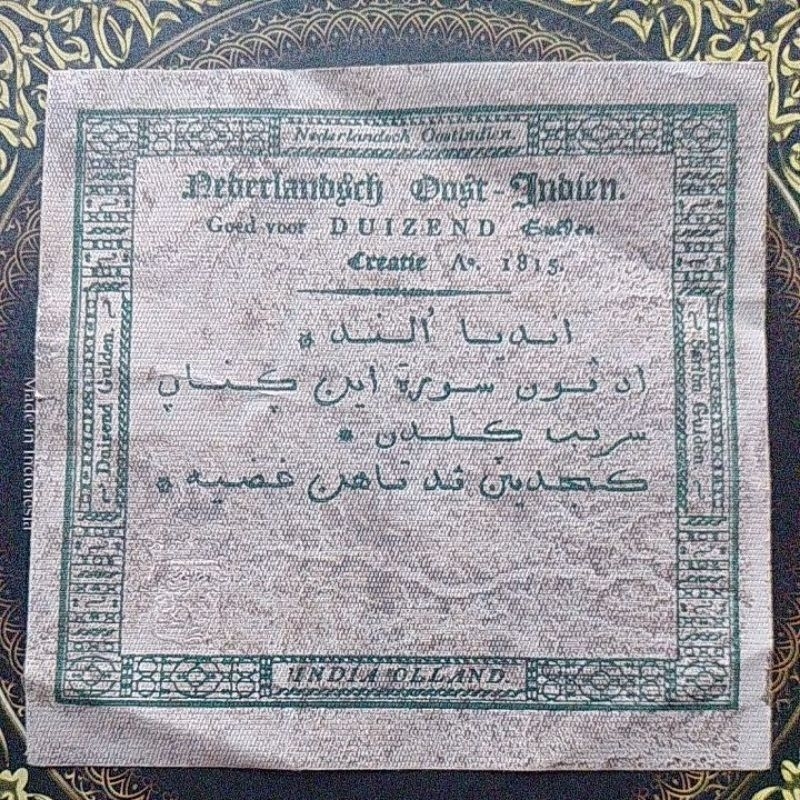 Nederlandsch Oostindien.
Nederlandsch Oost-Indien.
Goed voor DUIZEND Gulden
Creatie Aº. 1815.
انديا اُلند *
اد ڤون سورة اين
سريب
كجدين ڤد تاهن *
Duizend Gulden.
Seribu Gulden.
INDIA OLLAND.
Made in Indonesia